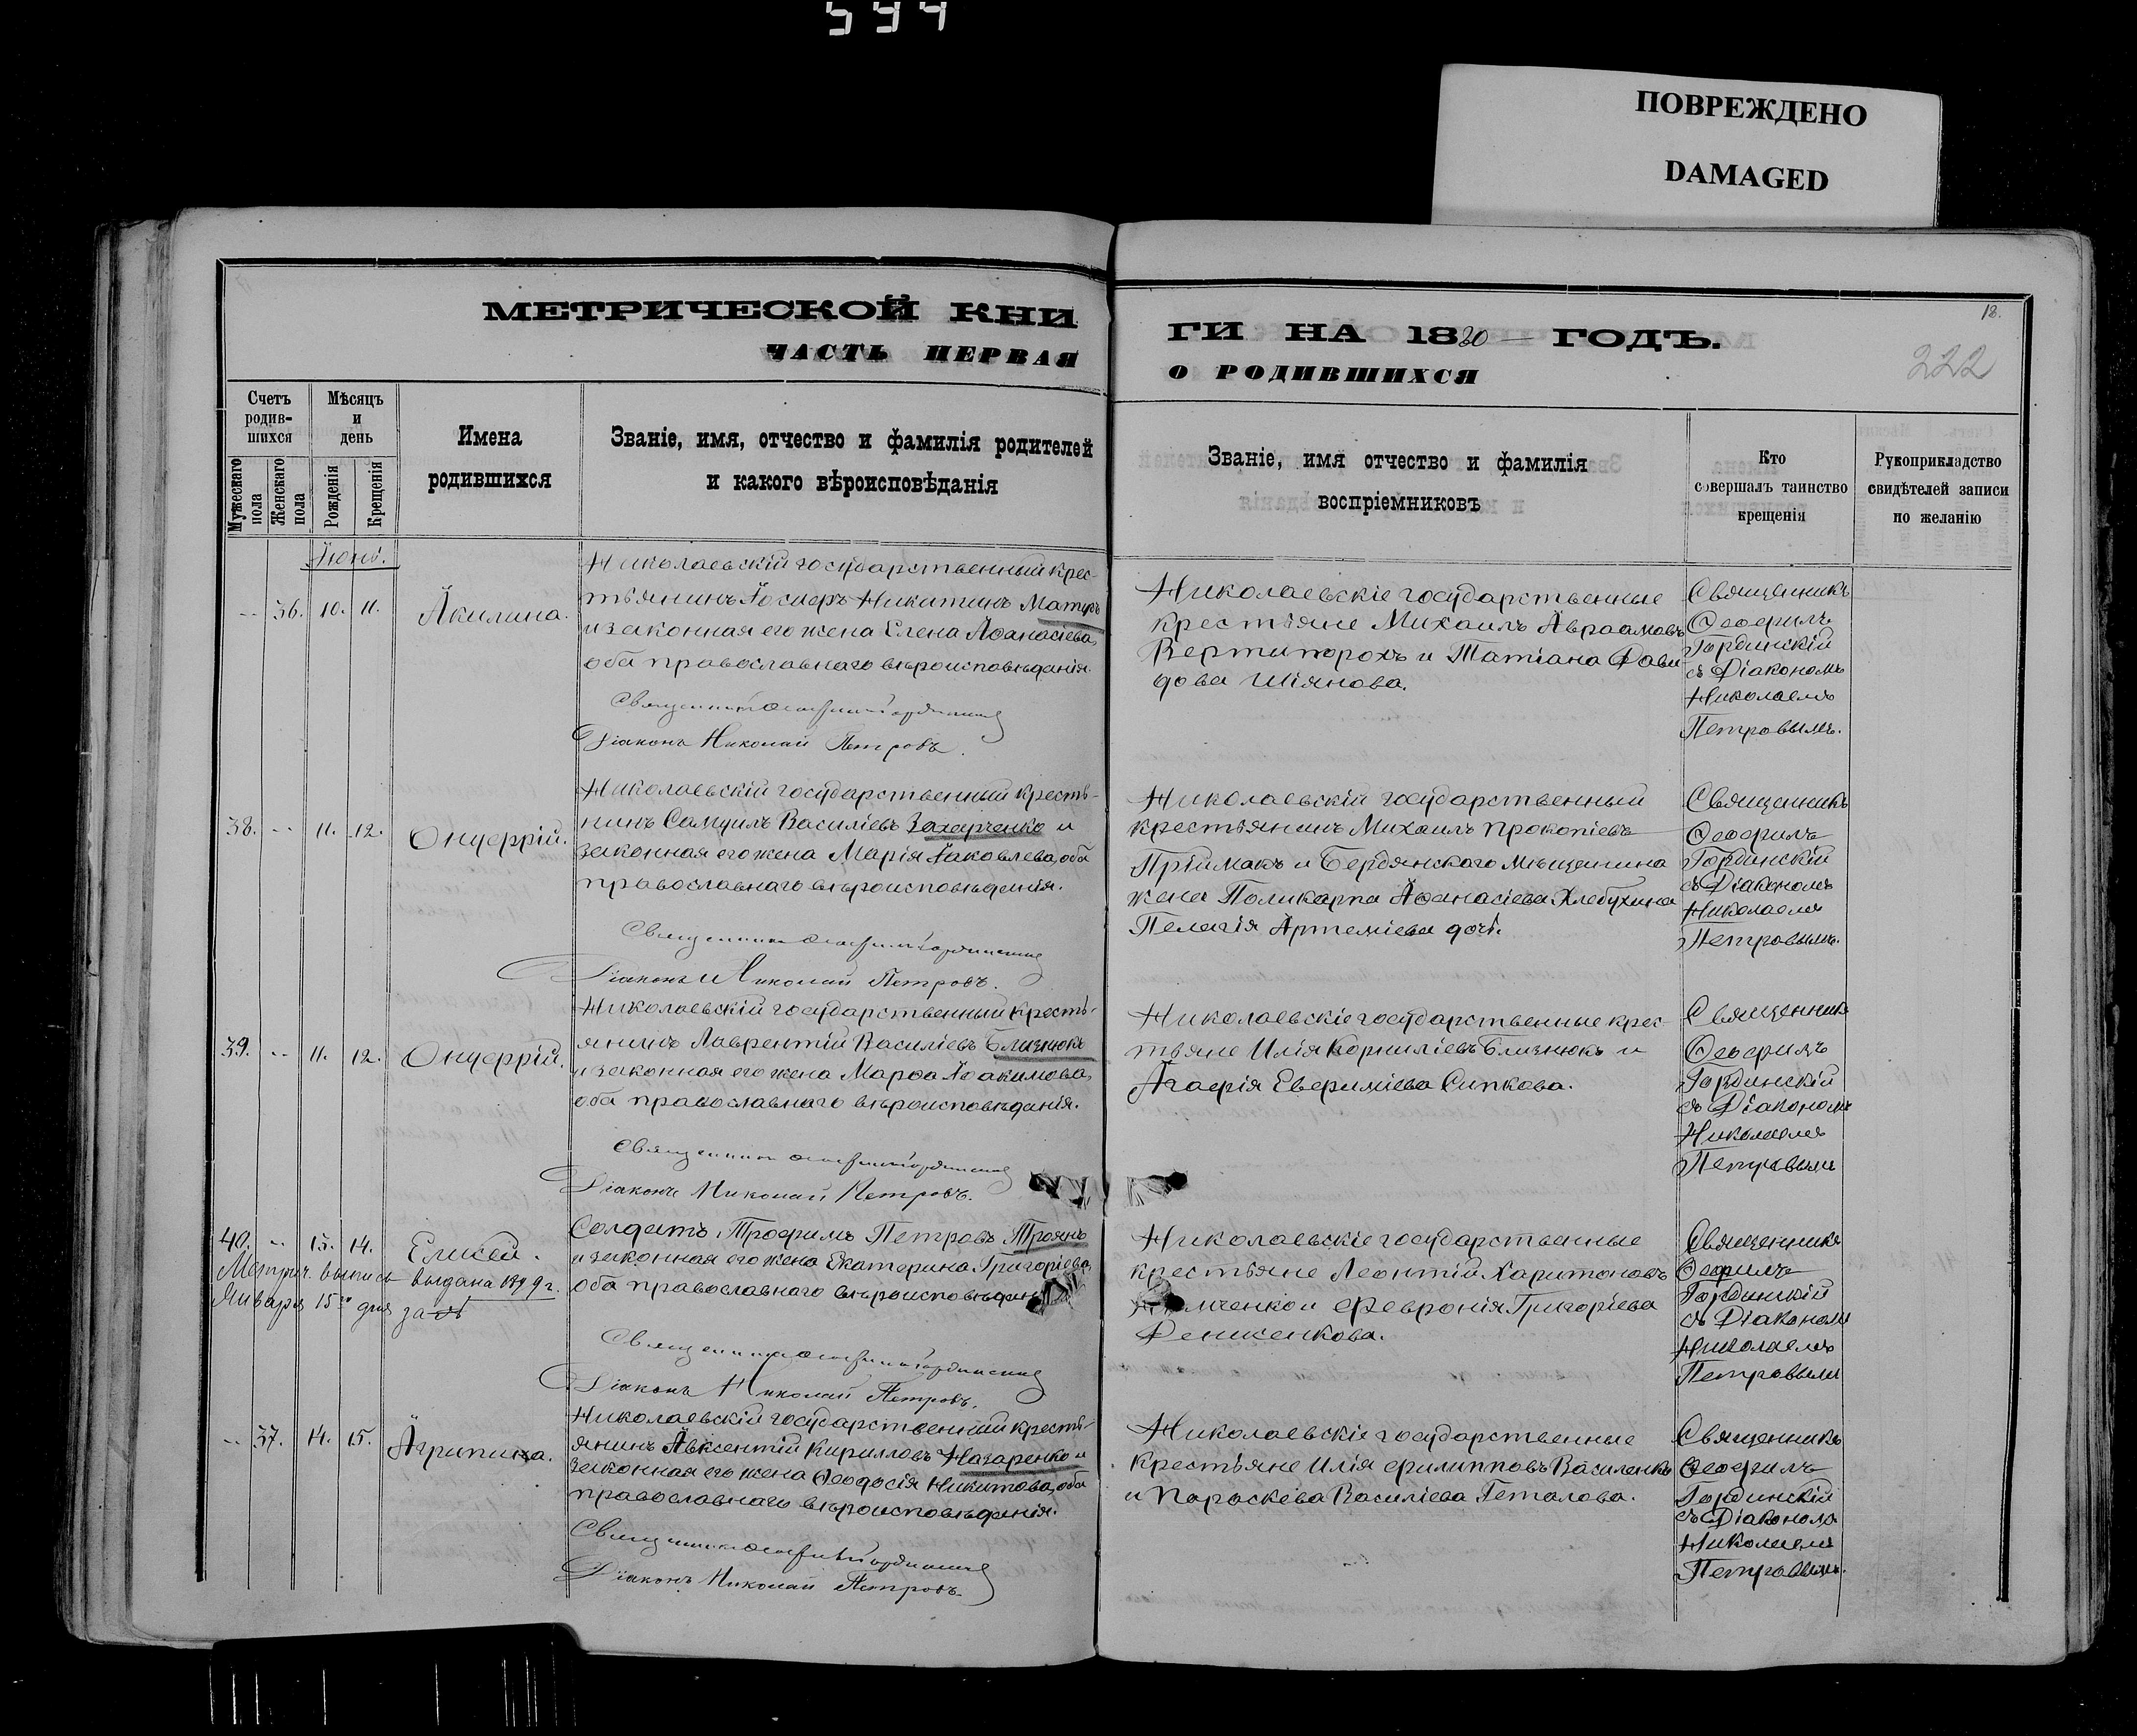 594
ПОВРЕЖДЕНО
DAMAGED
МЕТРИЧЕСКОЙ КНИ
ЧАСТЬ ПЕРВАЯ
Счетъ
родив-
шихся
Мѣсяцъ
и
день
Мужескаго
пола
Женскаго
пола
Рожденія
Крещенія
Имена
родившихся
Званіе, имя, отчество и фамилія родителей
и какого вѣроисповѣданія
Іюнь.
-- 36. 10. 11. Акилина.
Николаевскій государственный крес-
тьянинъ Іосифъ Никитинъ
и законная его жена Елена Аѳанасіева,
оба православнаго вѣроисповѣданія.
Священникъ Ѳеофилъ Гординскій
Діаконъ Николай Петровъ.
38. -- 11. 12. Онуфрій.
Николаевскій государственный кресть-
нинъ Самуилъ Василіевъ Захарченко и
законная его жена Марія Іаковлева, оба
православнаго вѣроисповѣданія.
Священникъ Ѳеофилъ Гординскій
Діаконъ Николай Петровъ.
39. -- 11. 12. Онуфрій.
Николаевскій государственный кресть-
янинъ Лаврентій Василіевъ Близнюкъ
и законная его жена Марѳа Іоакимова,
оба православнаго вѣроисповѣданія.
Священникъ Ѳеофилъ Гординскій
Діаконъ Николай Петровъ.
40. -- 13. 14. Елисей.
Метрич. выпись выдана 1899 г.
Января 15го дня за №
Солдатъ, Трофимъ Петровъ Троянъ
и законная его жена Екатерина Григоріева,
оба православнаго
Священникъ Ѳеофилъ Гординскій
Діаконъ Николай Петровъ.
-- 37. 14. 15. Агрипина.
Николаевскій государственный кресть-
янинъ Авксентій Кирилловъ Назаренко и
законная его жена Ѳеодосія Никитова, оба
православнаго вѣроисповѣданія.
Священникъ Ѳеофилъ Гординскій
Діаконъ Николай Петровъ.
18.
222
ГИ НА 1880 ГОДЪ.
О РОДИВШИХСЯ
Званіе, имя отчество и фамилія
воспріемниковъ
Кто
совершалъ таинство
крещенія
Рукоприкладство
свидѣтелей записи
по желанію
Николаевскіе государственные
крестьяне Михаилъ Авраамовъ
Вертипорохъ и Татіана Дави-
дова Шіянова.
Священникъ
Ѳеофилъ
Гординскій
съ Діакономъ
Николаемъ
Петровымъ.
Николаевскій государственный
крестьянинъ Михаилъ Прокопіевъ
Пріймакъ и Бердянского мѣщанина
жена Поликарпа Аѳанасіева Хлебухина
Пелагія Артеміева дочь.
Священникъ
Ѳеофилъ
Гординскій
съ Діакономъ
Николаемъ
Петровымъ.
Николаевскіе государственные крес-
тьяне Илія Корниліевъ Близнюкъ и
Агафія Евфиміева Сипкова.
Священникъ
Ѳеофилъ
Гординскій
съ Діакономъ
Николаемъ
Петровымъ
Николаевскіе государственные
крестьяне Леонтій Харитоновъ
и Февронія Григоріева
Денисенкова.
Священникъ
Ѳеофилъ
Гординскій
съ Діакономъ
Николаемъ
Петровымъ
Николаевскіе государственные
крестьяне Илія Филипповъ Василенко
и Параскева Василіева Геталова.
Священникъ
Ѳеофилъ
Гординскій
съ Діакономъ
Николаемъ
Петровымъ.